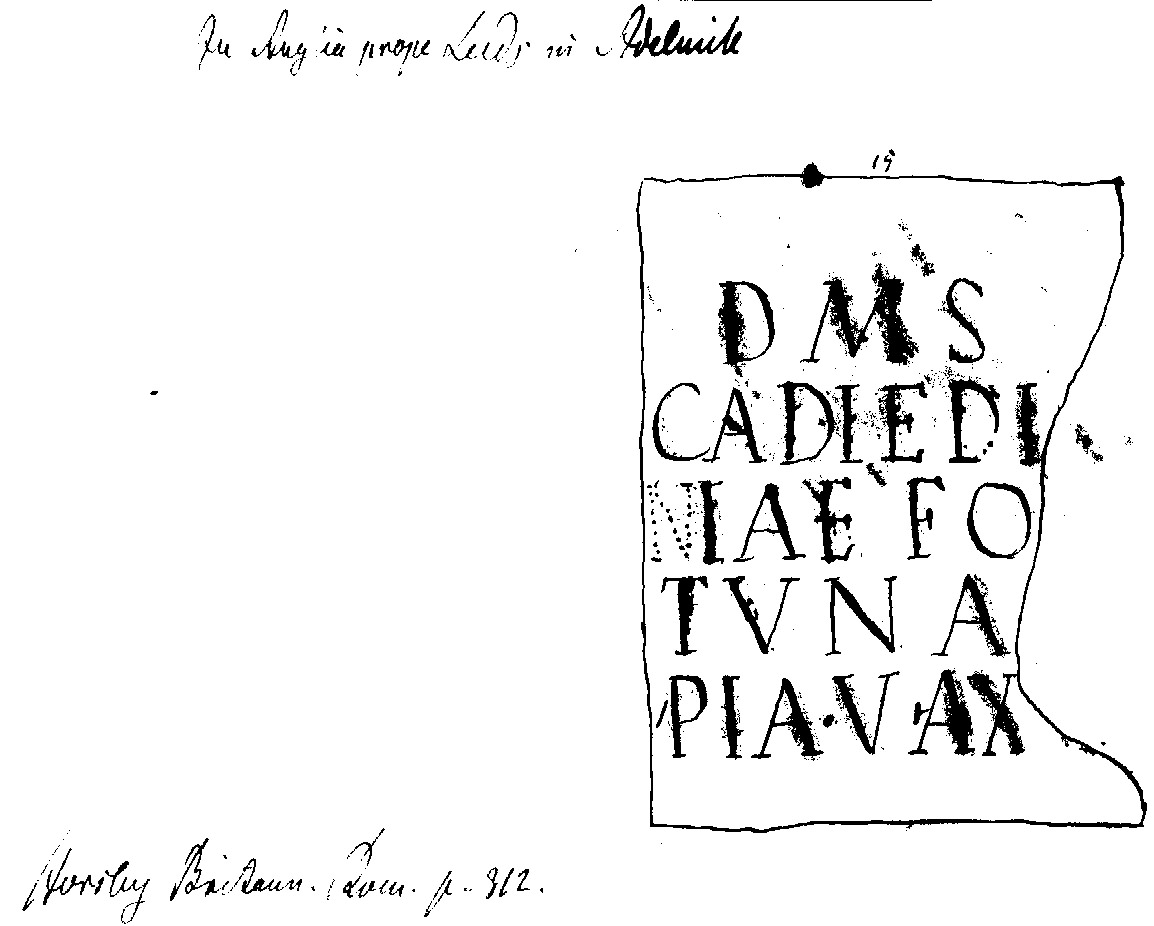 In Anglia prope Leeds in Adelmik
19
D M S
CADIEDI
NIAE FO
TVNA
PIA·V·AX
Horsley Britann. Rom. p. 312.